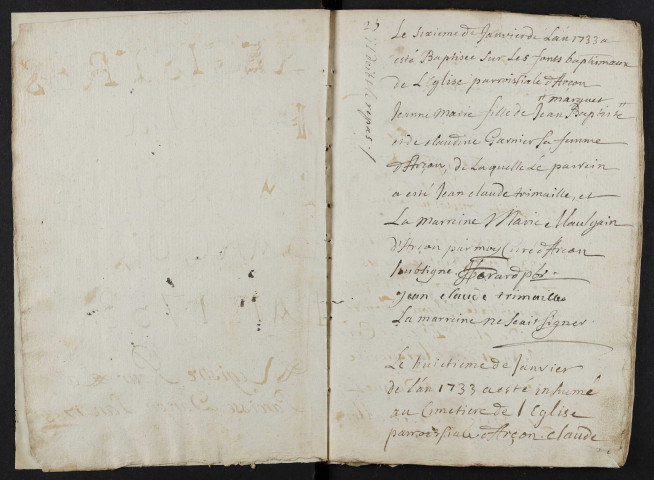 Le sixieme de Janvier de Lan 1733 a
esté Baptisée sur Les fonts baptismaux
de L'Eglise parroissiale d'Arçon
Jeanne Marie fille de Jean Baptiste
marguet
et de claudine Garnier sa femme
d'Arçon, de Laquelle Le parrein
a esté Jean claude trimaille, et
La marreine Marie Maulgain
D'Arçon par moy Curé d'Arcon
soubsigné
Jean claude trimaille
La marreine ne scait signer.
Le huitieme de Janvier
de L'an 1733 a esté inhumé
au Cimetiere de l'Eglise
parroissiale d'Arçon claude